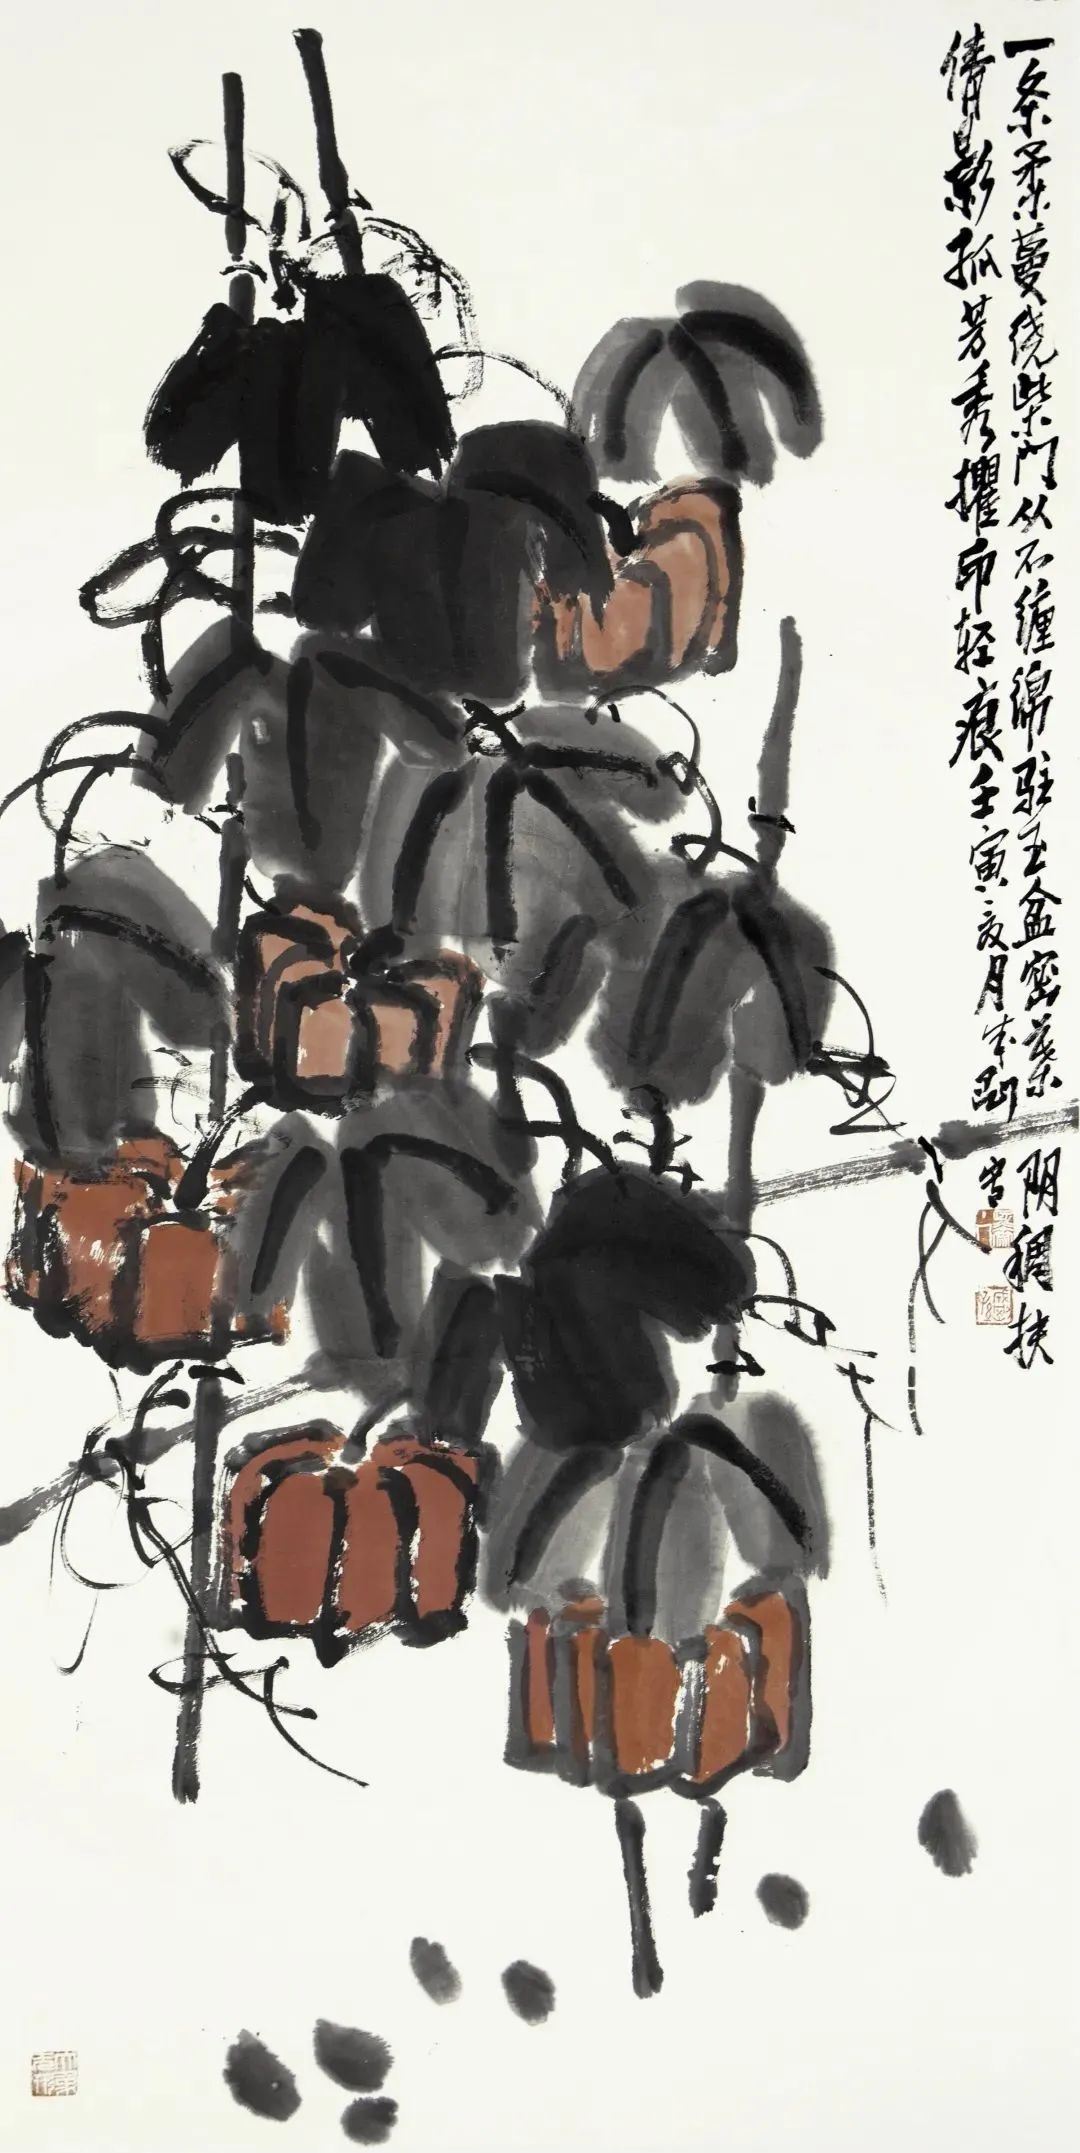 一条柔蔓绕柴门从不缠绵驻玉盆密叶阴稠扶
倩影孤芳秀擢印轻痕壬寅二月